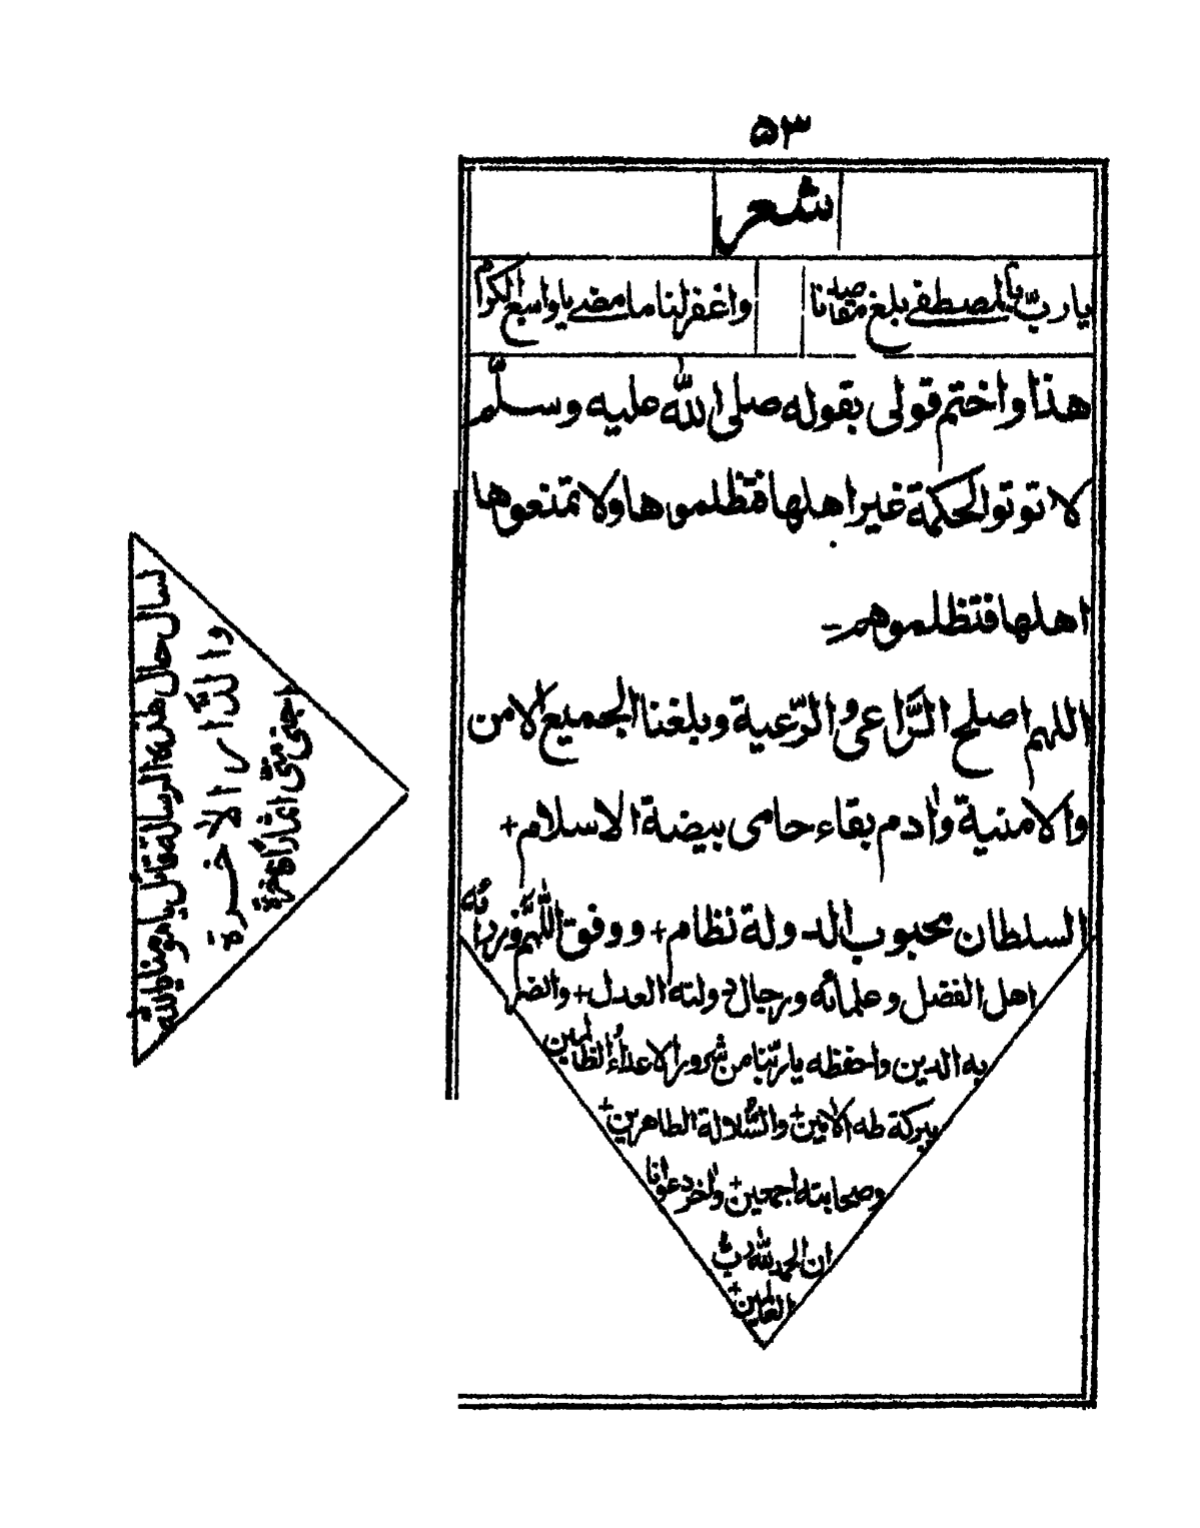 ۵۳
شعر
يا ربّ بالمصطفى بلغ مقاصدنا واغفرلنا ما مضى يا واسع الكرام
هذا واختم قولى بقوله صلى الله عليه وسلّم
لا توتوالحكمة غيراهلها فتظلموها ولا تمنعوها
اهلها فتظلموهم ـ
اللهم اصلح الرّاعى والرّعية وبلغنا الجميع الامن
والامنية وادم بقاء حامى بيضة الاسلام +
السلطان محبوب الدولة نظام + ووفق اللّهم وزرائه
اهل الفضل وعلمائه ورجال دولته العدل + وانصر
به الدين واحفظه يا ربّنا من شرور الاعداء الظالمين
ببركة طه الامين + والسُّلالة الطاهرين +
وصحابته اجمعين + واخر دعوانا
ان الحمد لله ربّ
العالمين +
لسال حال هذه الرسالة قائل يا مومنا بالله
والدّار الاخرة
اجنى منّى اثمار